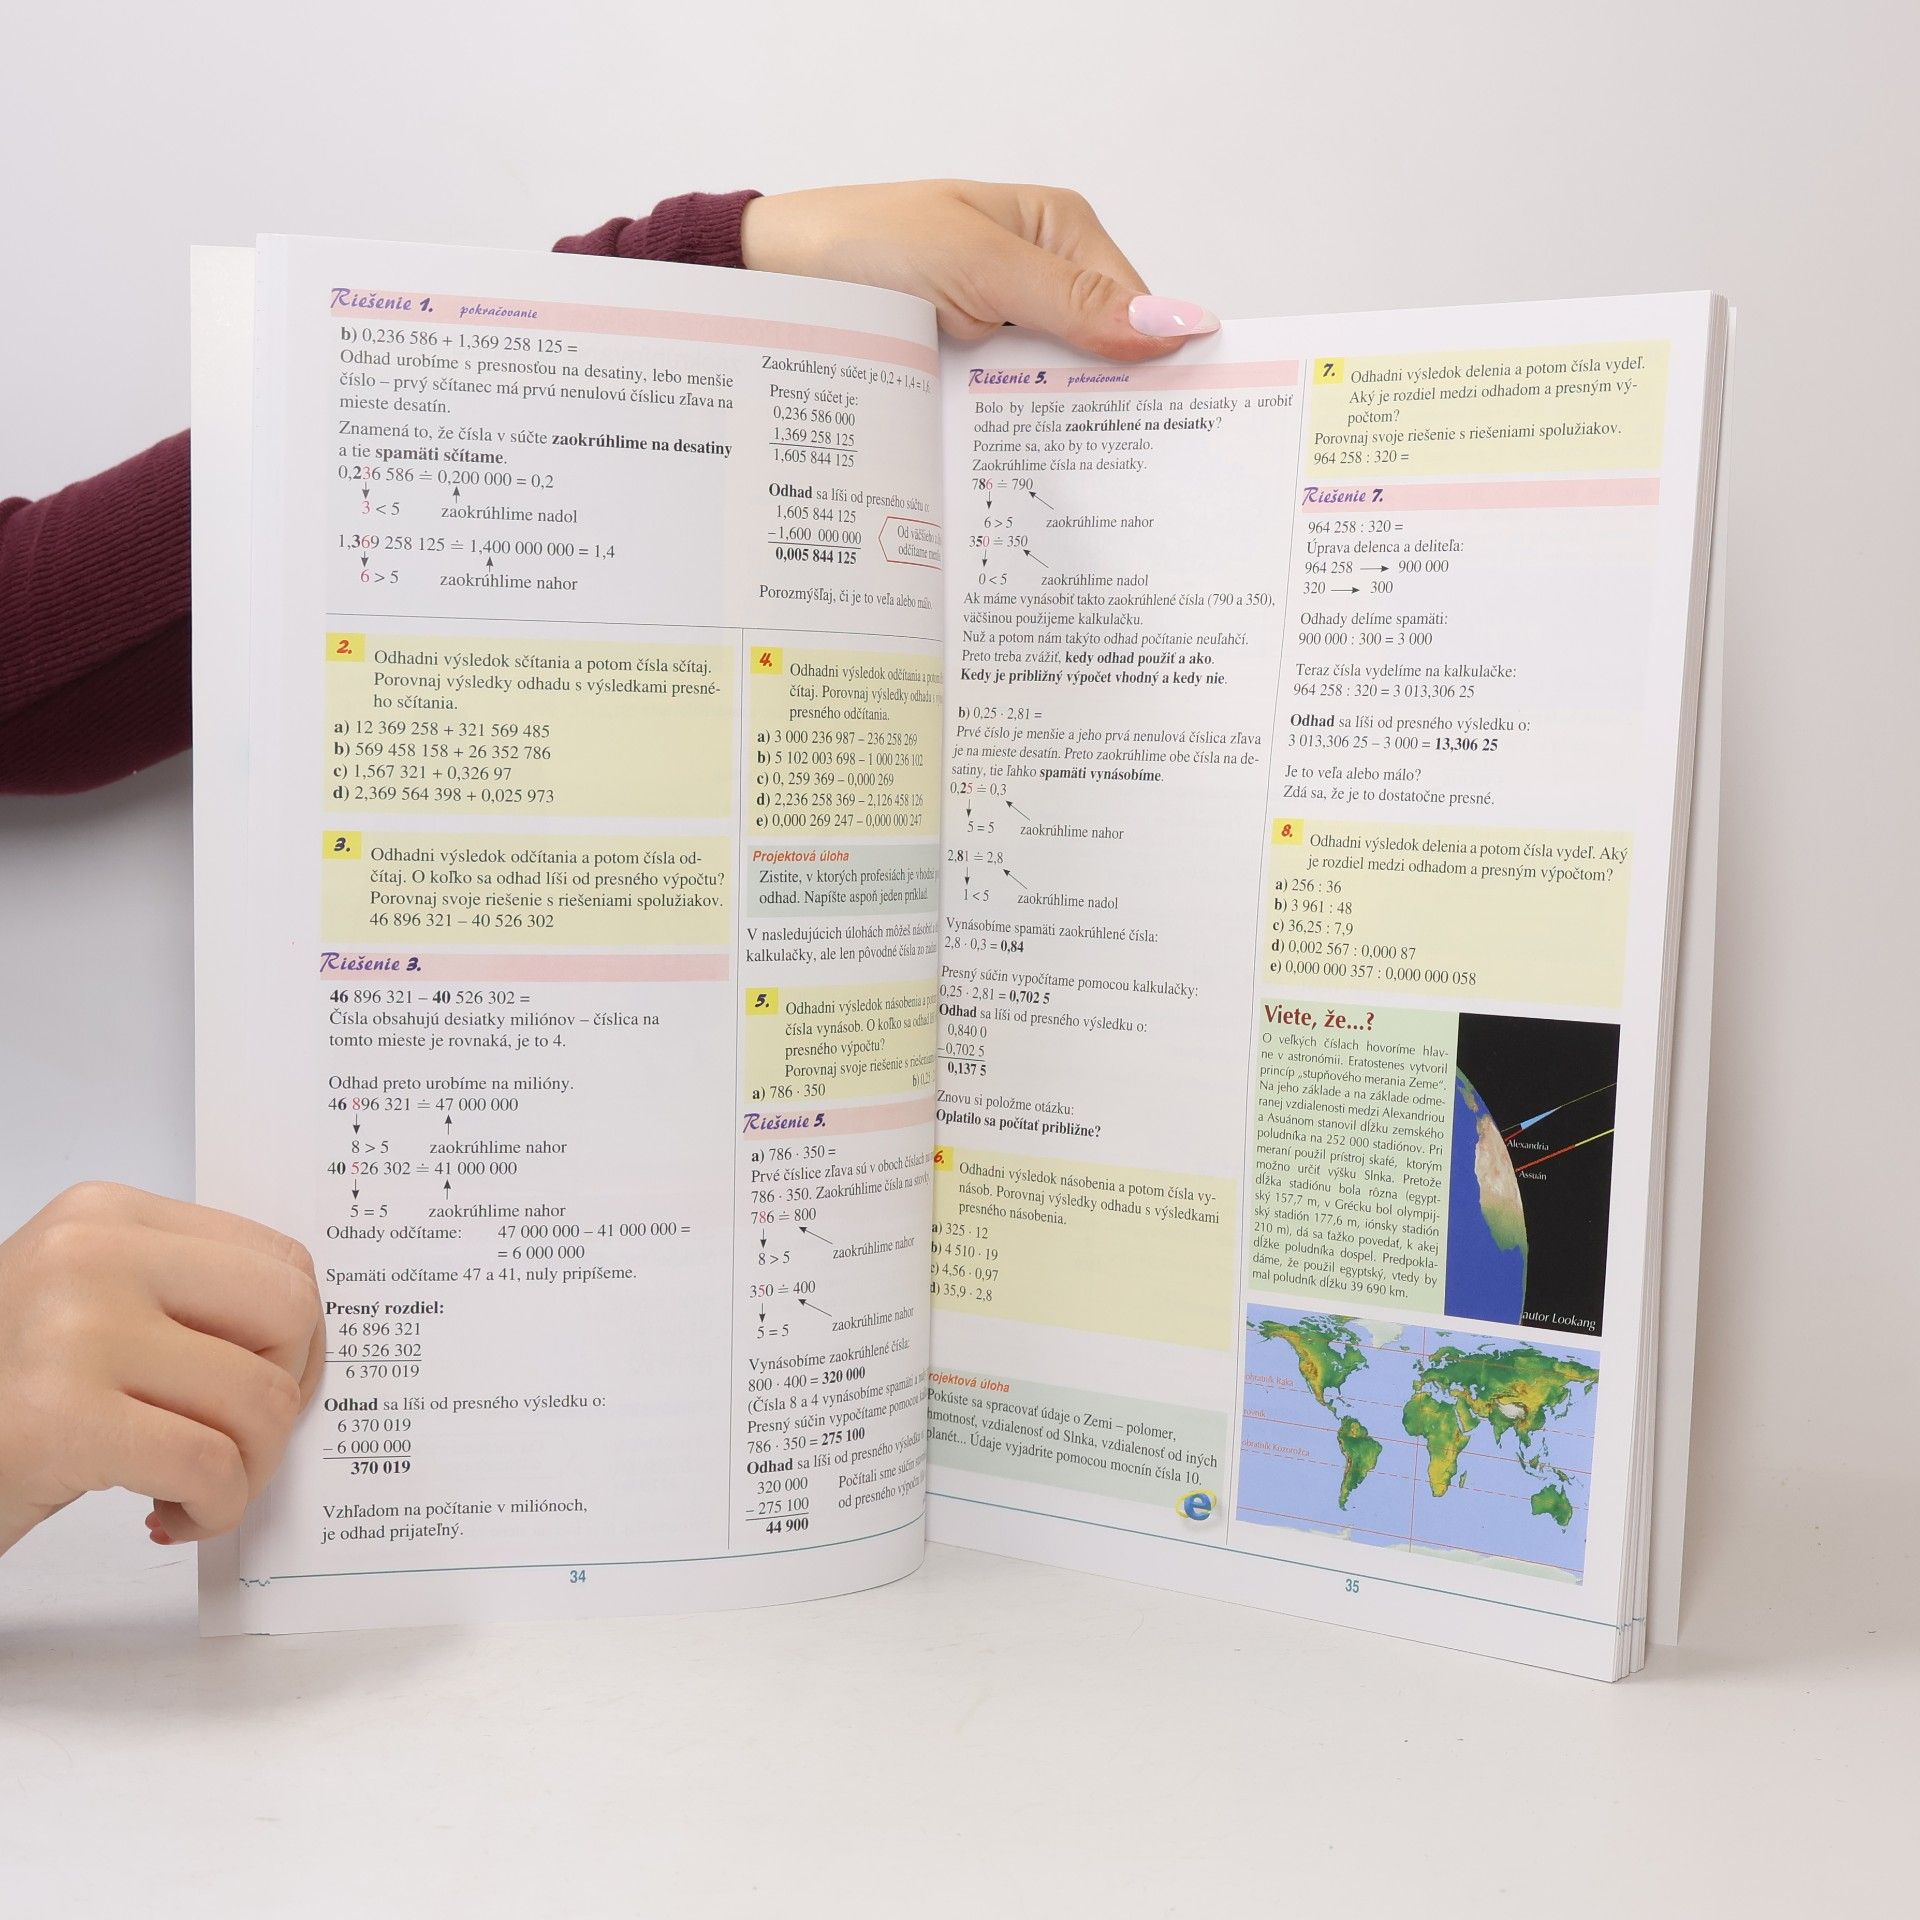 Riešenie 1. pokračovanie
b) 0,236 586 + 1,369 258 125 =
Odhad urobíme s presnosťou na desatiny, lebo menšie
číslo – prvý sčítanec má prvú nenulovú číslicu zľava na
mieste desatín.
Znamená to, že čísla v súčte zaokrúhlime na desatiny
a tie spamäti sčítame.
0,236 586 ≐ 0,200 000 = 0,2
3 < 5 zaokrúhlime nadol
1,369 258 125 ≐ 1,400 000 000 = 1,4
6 > 5 zaokrúhlime nahor
Zaokrúhlený súčet je 0,2 + 1,4 = 1,6
Presný súčet je:
0,236 586 000
1,369 258 125
1,605 844 125
Odhad sa líši od presného súčtu
1,605 844 125
– 1,600 000 000
0,005 844 125
Od väčšieho
odčítame
Porozmýšľaj, či je to veľa alebo málo.
2.
Odhadni výsledok sčítania a potom čísla sčítaj.
Porovnaj výsledky odhadu s výsledkami presné-
ho sčítania.
a) 12 369 258 + 321 569 485
b) 569 458 158 + 26 352 786
c) 1,567 321 + 0,326 97
d) 2,369 564 398 + 0,025 973
3.
Odhadni výsledok odčítania a potom čísla od-
čítaj. O koľko sa odhad líši od presného výpočtu?
Porovnaj svoje riešenie s riešeniami spolužiakov.
46 896 321 – 40 526 302
Riešenie 3.
46 896 321 – 40 526 302 =
Čísla obsahujú desiatky miliónov – číslica na
tomto mieste je rovnaká, je to 4.
Odhad preto urobíme na milióny.
46 896 321 ≐ 47 000 000
8 > 5 zaokrúhlime nahor
40 526 302 ≐ 41 000 000
5 = 5 zaokrúhlime nahor
Odhady odčítame: 47 000 000 – 41 000 000 =
= 6 000 000
Spamäti odčítame 47 a 41, nuly pripíšeme.
Presný rozdiel:
46 896 321
– 40 526 302
6 370 019
Odhad sa líši od presného výsledku o:
6 370 019
– 6 000 000
370 019
Vzhľadom na počítanie v miliónoch,
je odhad prijateľný.
4.
Odhadni výsledok odčítania a
čítaj. Porovnaj výsledky odhadu
presného odčítania.
a) 3 000 236 987 – 236 258 269
b) 5 102 003 698 – 1 000 236 102
c) 0, 259 369 – 0,000 269
d) 2,236 258 369 – 2,126 458 126
e) 0,000 269 247 – 0,000 000 247
Projektová úloha
Zistite, v ktorých profesiách je vhodné
odhad. Napíšte aspoň jeden príklad.
V nasledujúcich úlohách môžeš násobiť
kalkulačky, ale len pôvodné čísla zo
5.
Odhadni výsledok násobenia a
čísla vynásob. O koľko sa odhad
presného výpočtu?
Porovnaj svoje riešenie s
a) 786 · 350
Riešenie 5.
a) 786 · 350 =
Prvé číslice zľava sú v oboch číslach
786 · 350. Zaokrúhlime čísla na stovky
786 ≐ 800
8 > 5 zaokrúhlime nahor
350 ≐ 400
5 = 5 zaokrúhlime nahor
Vynásobíme zaokrúhlené čísla:
800 · 400 = 320 000
(Čísla 8 a 4 vynásobíme spamäti a
Presný súčin vypočítame pomocou
786 · 350 = 275 100
Odhad sa líši od presného výsledku
320 000 Počítali sme súčin
– 275 100 od presného
44 900
34
Riešenie 5. pokračovanie
Bolo by lepšie zaokrúhliť čísla na desiatky a urobiť
odhad pre čísla zaokrúhlené na desiatky?
Pozrime sa, ako by to vyzeralo.
Zaokrúhlime čísla na desiatky.
786 ≐ 790
6 > 5 zaokrúhlime nahor
350 ≐ 350
0 < 5 zaokrúhlime nadol
Ak máme vynásobiť takto zaokrúhlené čísla (790 a 350),
väčšinou použijeme kalkulačku.
Nuž a potom nám takýto odhad počítanie neuľahčí.
Preto treba zvážiť, kedy odhad použiť a ako.
Kedy je približný výpočet vhodný a kedy nie.
b) 0,25 · 2,81 =
Prvé číslo je menšie a jeho prvá nenulová číslica zľava
je na mieste desatín. Preto zaokrúhlime obe čísla na de-
satiny, tie ľahko spamäti vynásobíme.
0,25 ≐ 0,3
5 = 5 zaokrúhlime nahor
2,81 ≐ 2,8
1 < 5 zaokrúhlime nadol
Vynásobíme spamäti zaokrúhlené čísla:
2,8 · 0,3 = 0,84
Presný súčin vypočítame pomocou kalkulačky:
0,25 · 2,81 = 0,702 5
Odhad sa líši od presného výsledku o:
0,840 0
–0,702 5
0,137 5
Znovu si položme otázku:
Oplatilo sa počítať približne?
6.
Odhadni výsledok násobenia a potom čísla vy-
násob. Porovnaj výsledky odhadu s výsledkami
presného násobenia.
a) 325 · 12
b) 4 510 · 19
c) 4,56 · 0,97
d) 35,9 · 2,8
rojektová úloha
Pokúste sa spracovať údaje o Zemi – polomer,
hmotnosť, vzdialenosť od Slnka, vzdialenosť od iných
planét... Údaje vyjadrite pomocou mocnín čísla 10.
7.
Odhadni výsledok delenia a potom čísla vydeľ.
Aký je rozdiel medzi odhadom a presným vý-
počtom?
Porovnaj svoje riešenie s riešeniami spolužiakov.
964 258 : 320 =
Riešenie 7.
964 258 : 320 =
Úprava delenca a deliteľa:
964 258 → 900 000
320 → 300
Odhady delíme spamäti:
900 000 : 300 = 3 000
Teraz čísla vydelíme na kalkulačke:
964 258 : 320 = 3 013,306 25
Odhad sa líši od presného výsledku o:
3 013,306 25 – 3 000 = 13,306 25
Je to veľa alebo málo?
Zdá sa, že je to dostatočne presné.
8.
Odhadni výsledok delenia a potom čísla vydeľ. Aký
je rozdiel medzi odhadom a presným výpočtom?
a) 256 : 36
b) 3 961 : 48
c) 36,25 : 7,9
d) 0,002 567 : 0,000 87
e) 0,000 000 357 : 0,000 000 058
Viete, že...?
O veľkých číslach hovoríme hlav-
ne v astronómii. Eratostenes vytvoril
princíp „stupňového merania Zeme“.
Na jeho základe a na základe odme-
ranej vzdialenosti medzi Alexandriou
a Asuánom stanovil dĺžku zemského
poludníka na 252 000 stadiónov. Pri
meraní použil prístroj skafé, ktorým
možno určiť výšku Slnka. Pretože
dĺžka stadiónu bola rôzna (egypt-
ský 157,7 m, v Grécku bol olympij-
ský stadión 177,6 m, iónsky stadión
210 m), dá sa ťažko povedať, k akej
dĺžke poludníka dospel. Predpokla-
dáme, že použil egyptský, vtedy by
mal poludník dĺžku 39 690 km.
Alexandria
Assuán
autor Lookang
obratník Raka
rovník
obratník Kozorožca
35